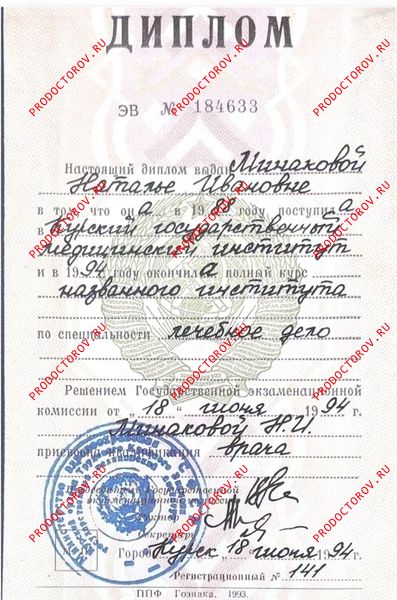 ДИПЛОМ
ЭВ № 184633
Настоящий диплом выдан Минаковой
Наталье Ивановне
в том, что он а в 19 88 году поступил а
в Курский государственный
медицинский институт
и в 19 94 году окончил а полный курс
названного института
по специальности лечебное дело
Решением Государственной экзаменационной
комиссии от „ 18 “ июня 19 94 г.
Минаковой Н.И.
присвоена квалификация врача
Председатель Государственной
экзаменационной комиссии
Ректор
Секретарь
Город Курск 18 июня 19 94
Регистрационный № 141
ППФ Гознака. 1993.
PRODOCTOROV.RU